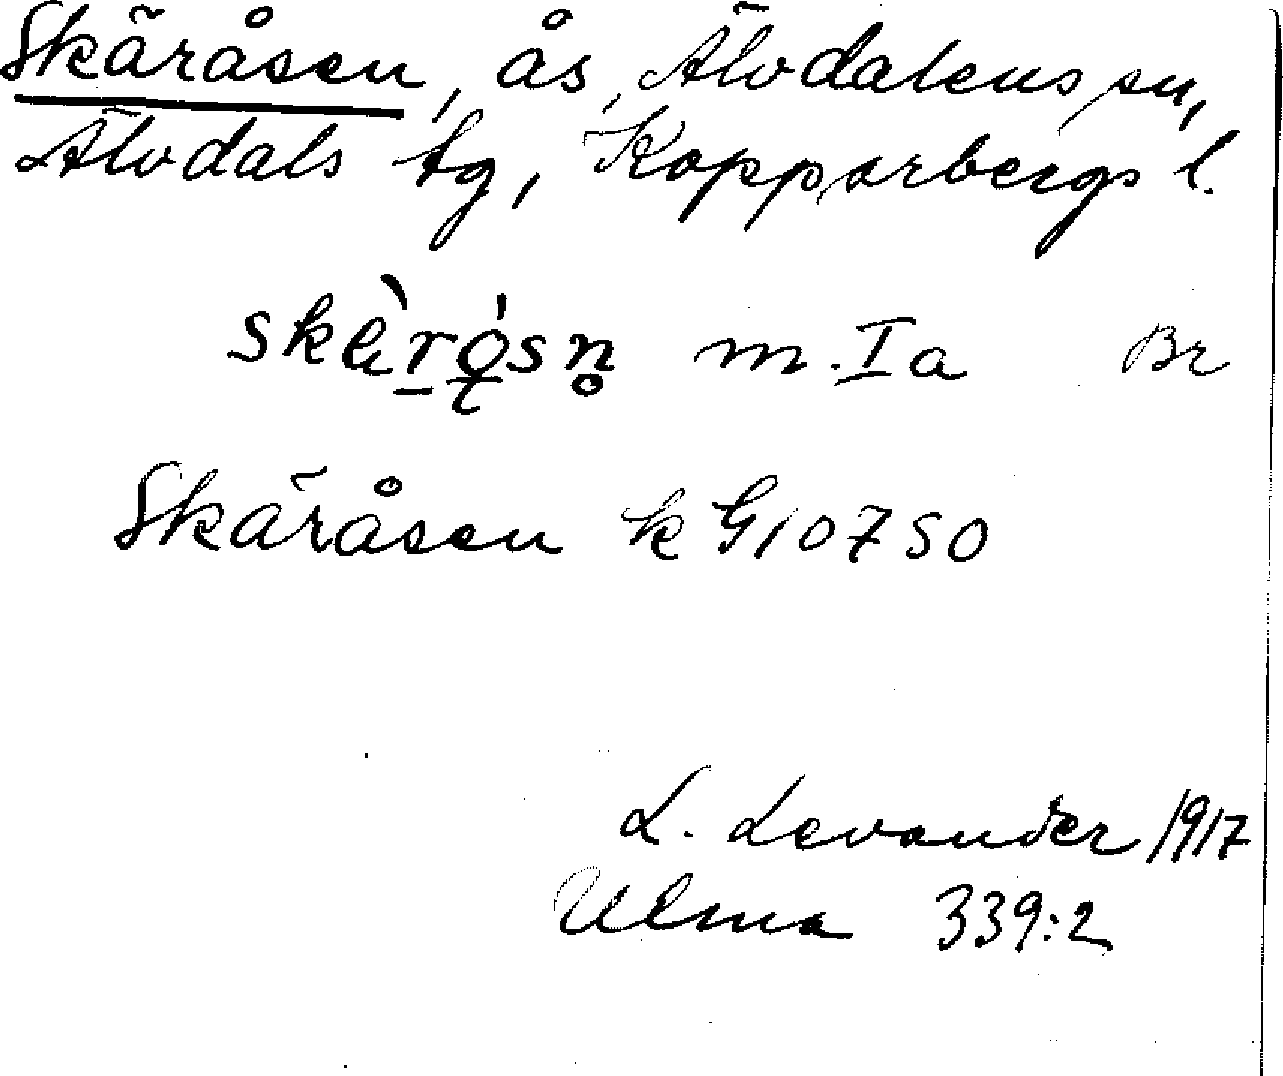 Skäråsen, ås, Älvdalens sn,
Älvdals tg, Kopparbergs l.
skè̱ró̱sn̥ m. Ia Br
Skäråsen k G10750
L. Levander 1917
Ulma 339:2